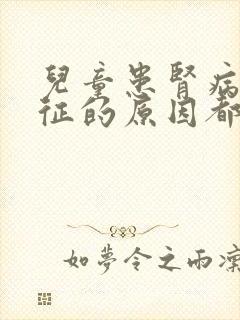 兒童患腎病
征的原因都
如夢令之雨凜